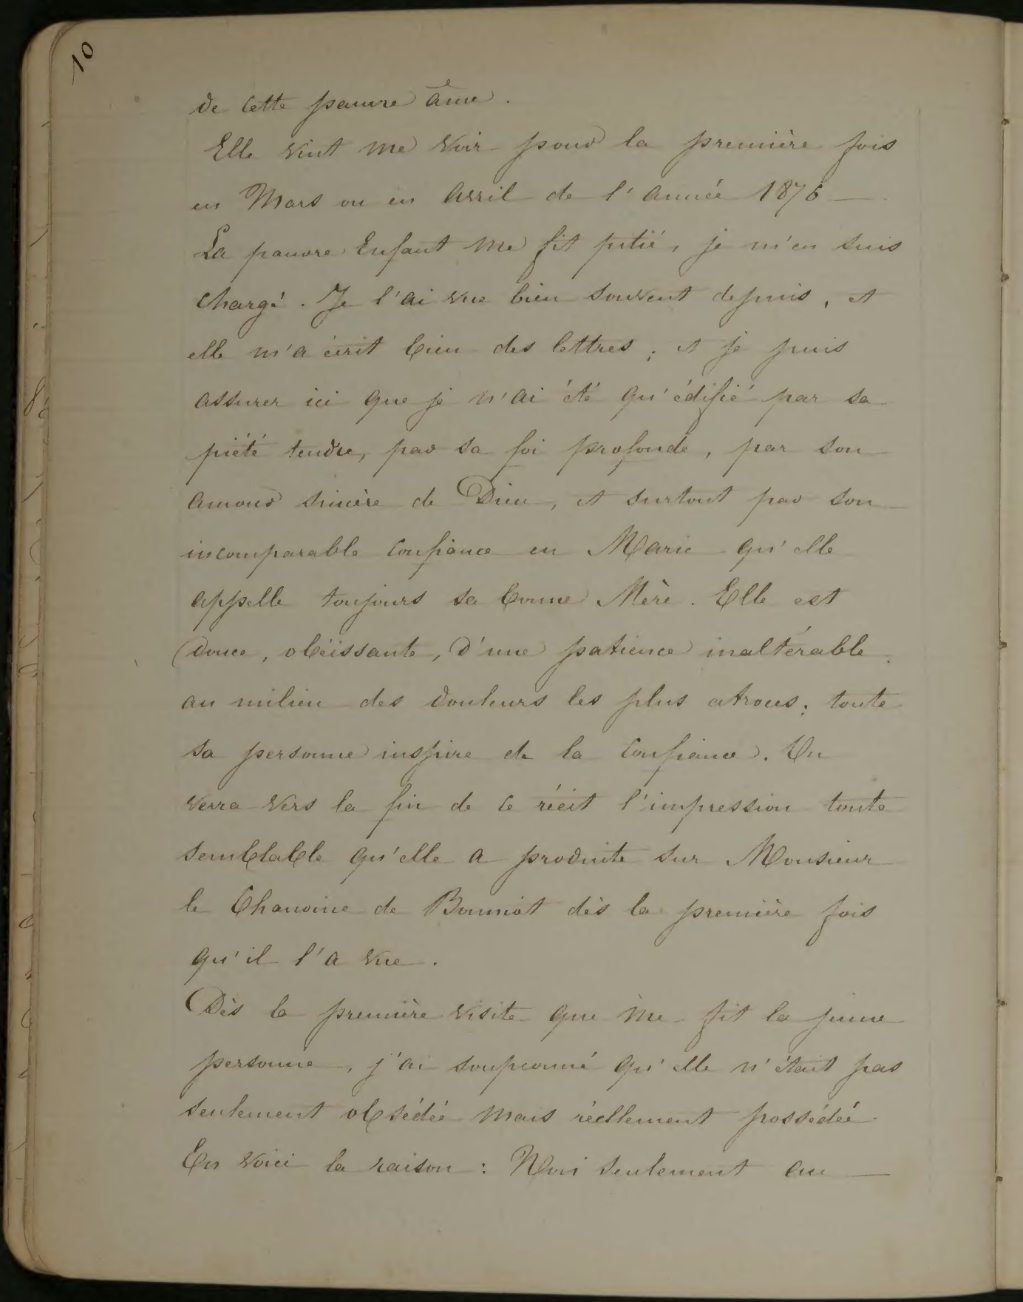 10
de cette pauvre âme.
Elle vint me voir pour la première fois
en Mars ou en Avril de l'année 1876 —
La pauvre Enfant me fit pitié, je m'en suis
chargé. Je l'ai vue bien souvent depuis, et
elle m'a écrit bien des lettres ; et je puis
assurer ici que je n'ai été qu'édifié par sa
piété tendre, par sa foi profonde, par son
amour sincère de Dieu, et surtout par son
incomparable confiance en Marie qu'elle
appelle toujours sa bonne Mère. Elle est
douce, obéissante, d'une patience inaltérable
au milieu des douleurs les plus atroces ; toute
sa personne inspire de la confiance. On
verra vers la fin de ce récit l'impression toute
semblable qu'elle a produite sur Monsieur
le Chanoine de dès la première fois
qu'il l'a vue.
Dès la première visite que me fit la jeune
personne, j'ai soupçonné qu'elle n'était pas
seulement obsédée mais réellement possédée.
En voici la raison : Non seulement au —